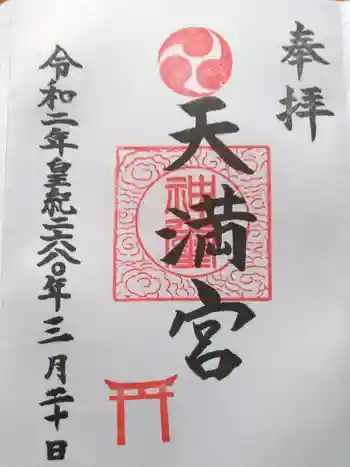 奉拝
天満宮
令和二年皇紀二六八〇年三月二十日